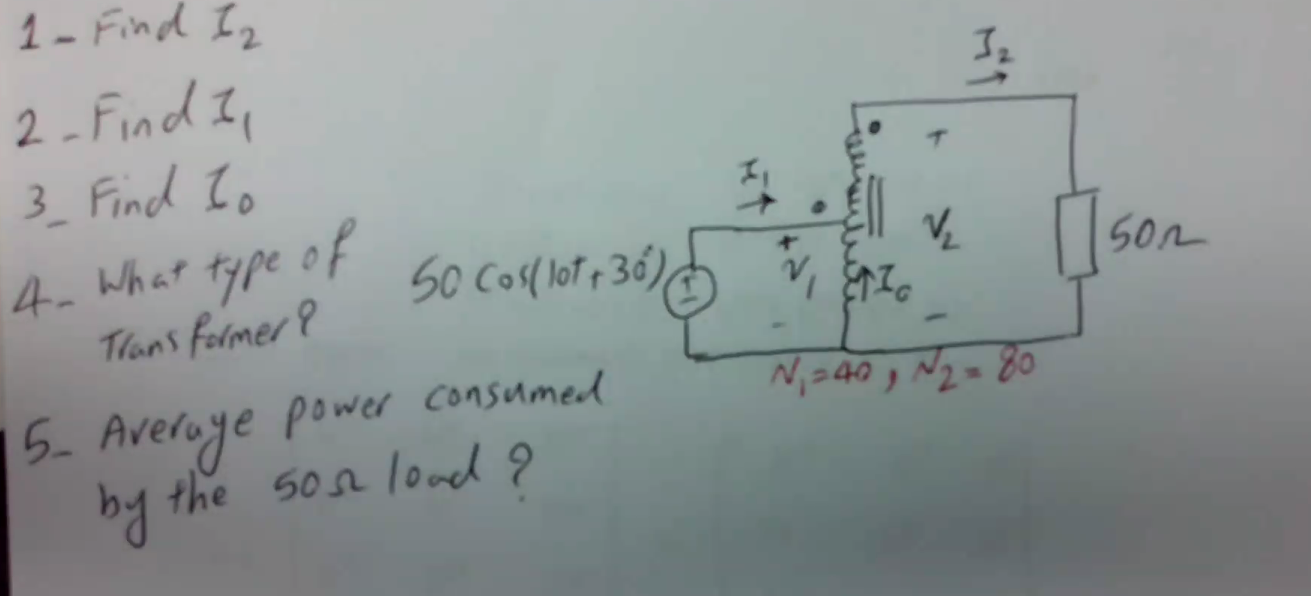 1- Find I₂
2- Find I₁
3- Find I₀
4- What type of
Transformer?
5- Average power consumed
by the 50Ω load?
50 Cos(10t+30°)
I₁
+
V₁
-
I₂
+
V₂
-
I₀
50Ω
N₁=40, N₂=80